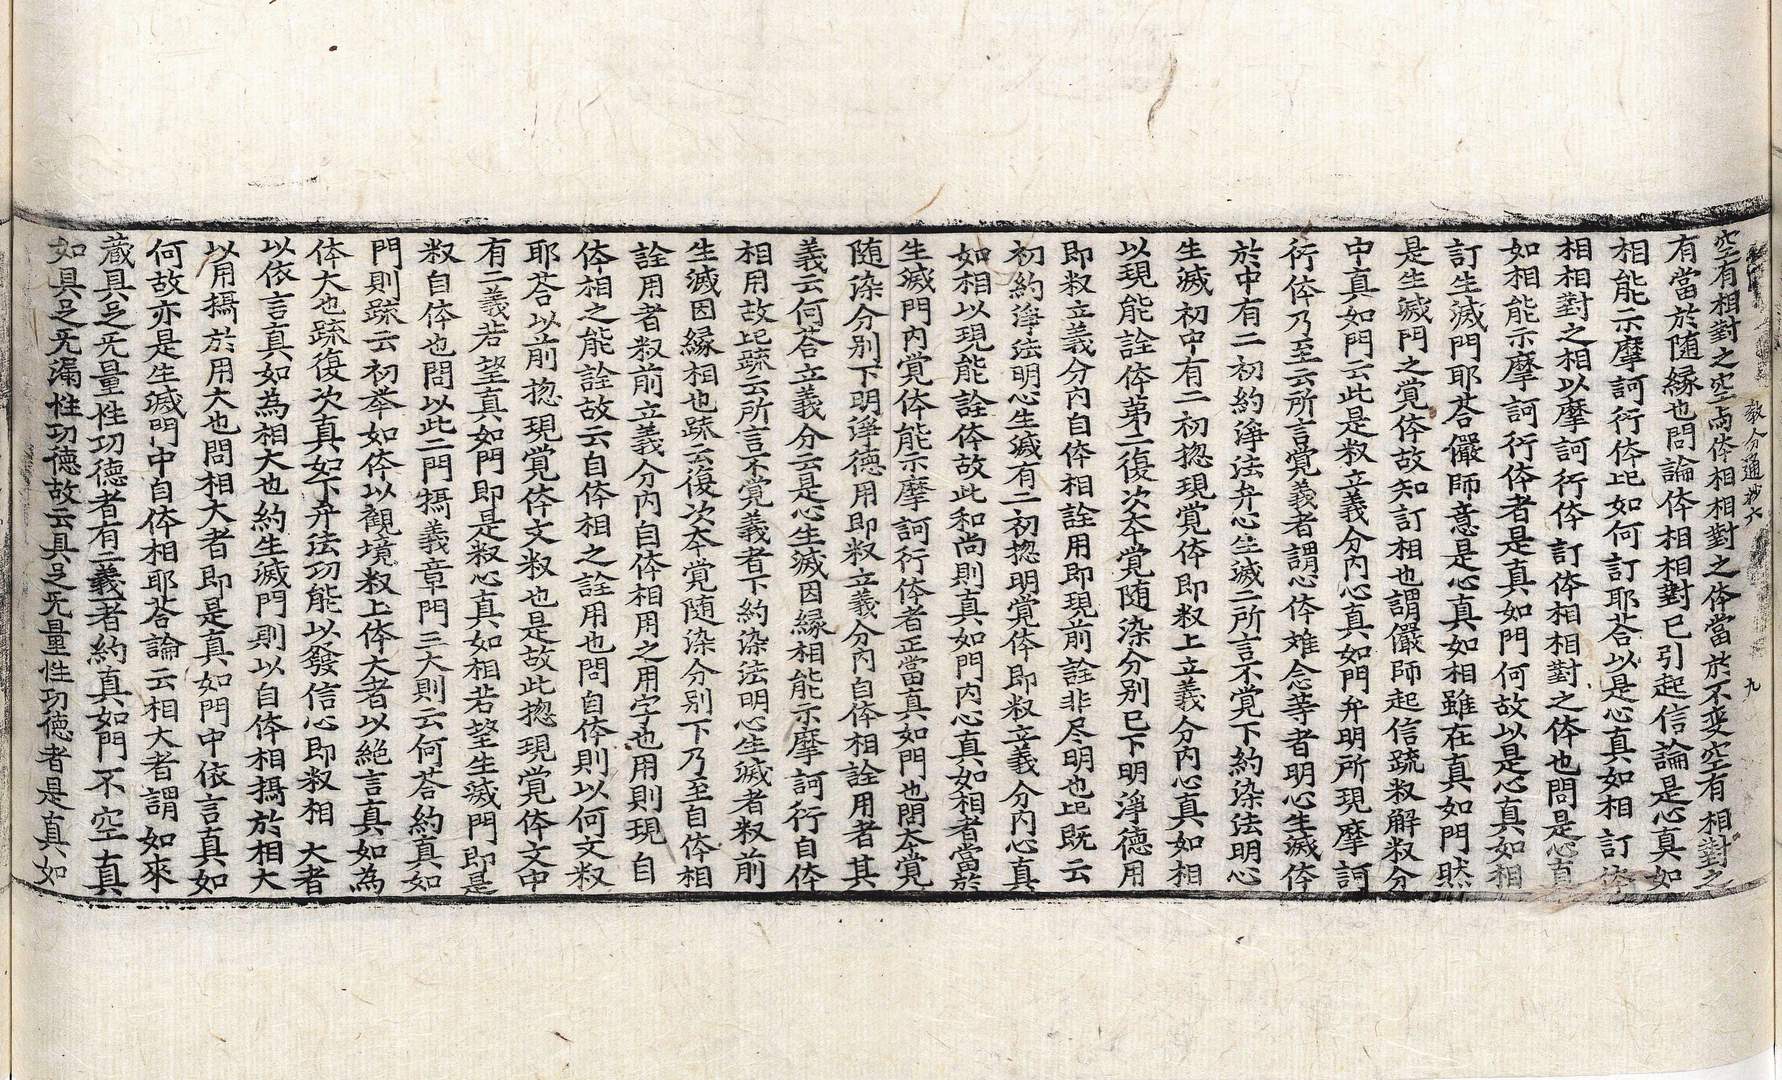 教分通抄六　九
空有相對之空両体相相對之体當於不变空有相對之
有當於随縁也問論体相相對已引起信論是心真如
相能示摩訶衍体此如何訂耶荅以是心真如相訂体
相相對之相以摩訶衍体訂体相相對之体也問是心真
如相能示摩訶衍体者是真如門何故以是心真如相
訂生滅門耶荅儼師意是心真如相雖在真如門然
是生滅門之覚体故知訂相也謂儼師起信疏敘解敘分
中真如門云此是敘立義分内心真如門弁明所現摩訶
衍体乃至云所言覚義者謂心体难念等者明心生滅体
於中有二初約淨法弁心生滅二所言不覚下約染法明心
生滅初中有二初捴現覚体即敘上立義分内心真如相
以現能詮体第二復次本覚随染分别已下明淨德用
即敘立義分内自体相詮用即現前詮非尽明也此既云
初約淨法明心生滅有二初捴明覚体即敘立義分内心真
如相以現能詮体故此和尚則真如門内心真如相者當於
生滅門内覚体能示摩訶衍体者正當真如門也問本覚
随染分别下明淨德用即敘立義分内自体相詮用者其
義云何荅立義分云是心生滅因縁相能示摩訶衍自体
相用故此疏云所言不覚義者下約染法明心生滅者敘前
生滅因縁相也疏云復次本覚随染分别下乃至自体相
詮用者敘前立義分内自体相用之用字也用則現自
体相之能詮故云自体相之詮用也問自体則以何文敘
耶荅以前捴現覚体文敘也是故此捴現覚体文中
有二義若望真如門即是敘心真如相若望生滅門即是
敘自体也問以此二門攝義章門三大則云何荅約真如
門則疏云初举如体以觀境敘上体大者以絶言真如為
体大也疏復次真如下弁法功能以發信心即敘相 大者
以依言真如為相大也約生滅門則以自体相攝於相大
以用攝於用大也問相大者即是真如門中依言真如
何故亦是生滅門中自体相耶荅論云相大者謂如來
蔵具足无量性功德者有二義者約真如門不空真
如具足无漏性功德故云具足无量性功德者是真如